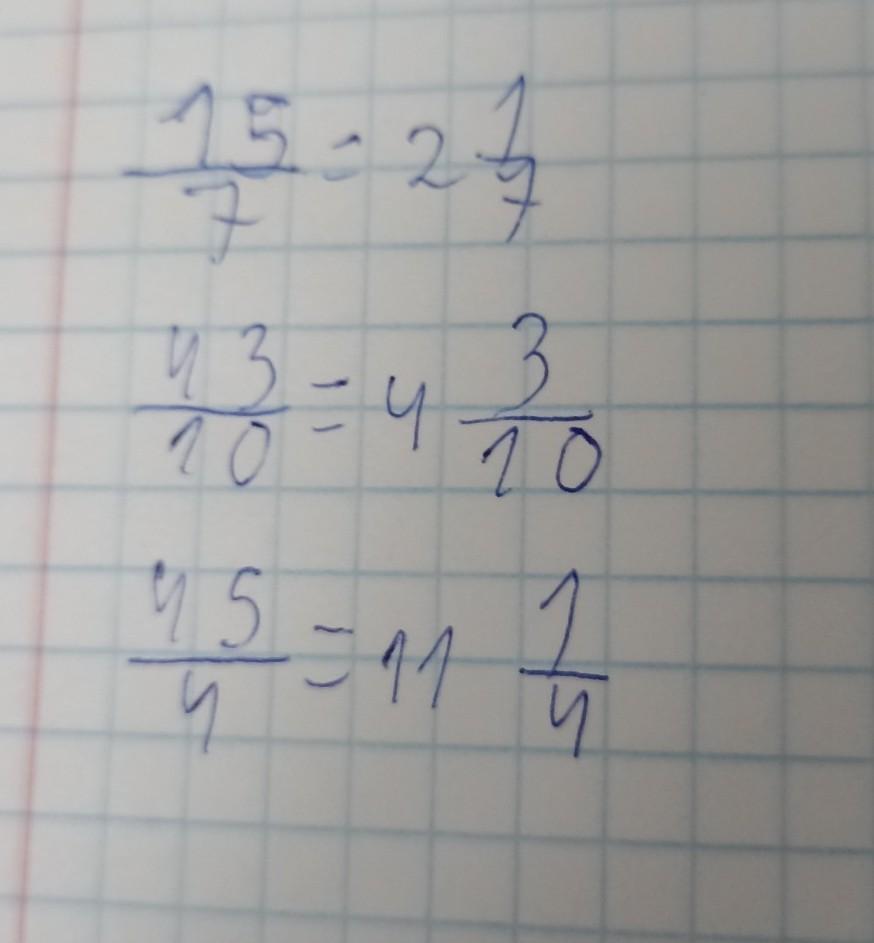 15/7 = 2 1/7
43/10 = 4 3/10
45/4 = 11 1/4